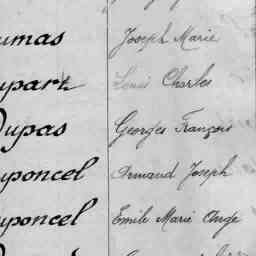 umas Joseph Marie
upart Louis Charles
Dupas Georges François
uponcel Armand Joseph
uponcel Emile Marie Ange